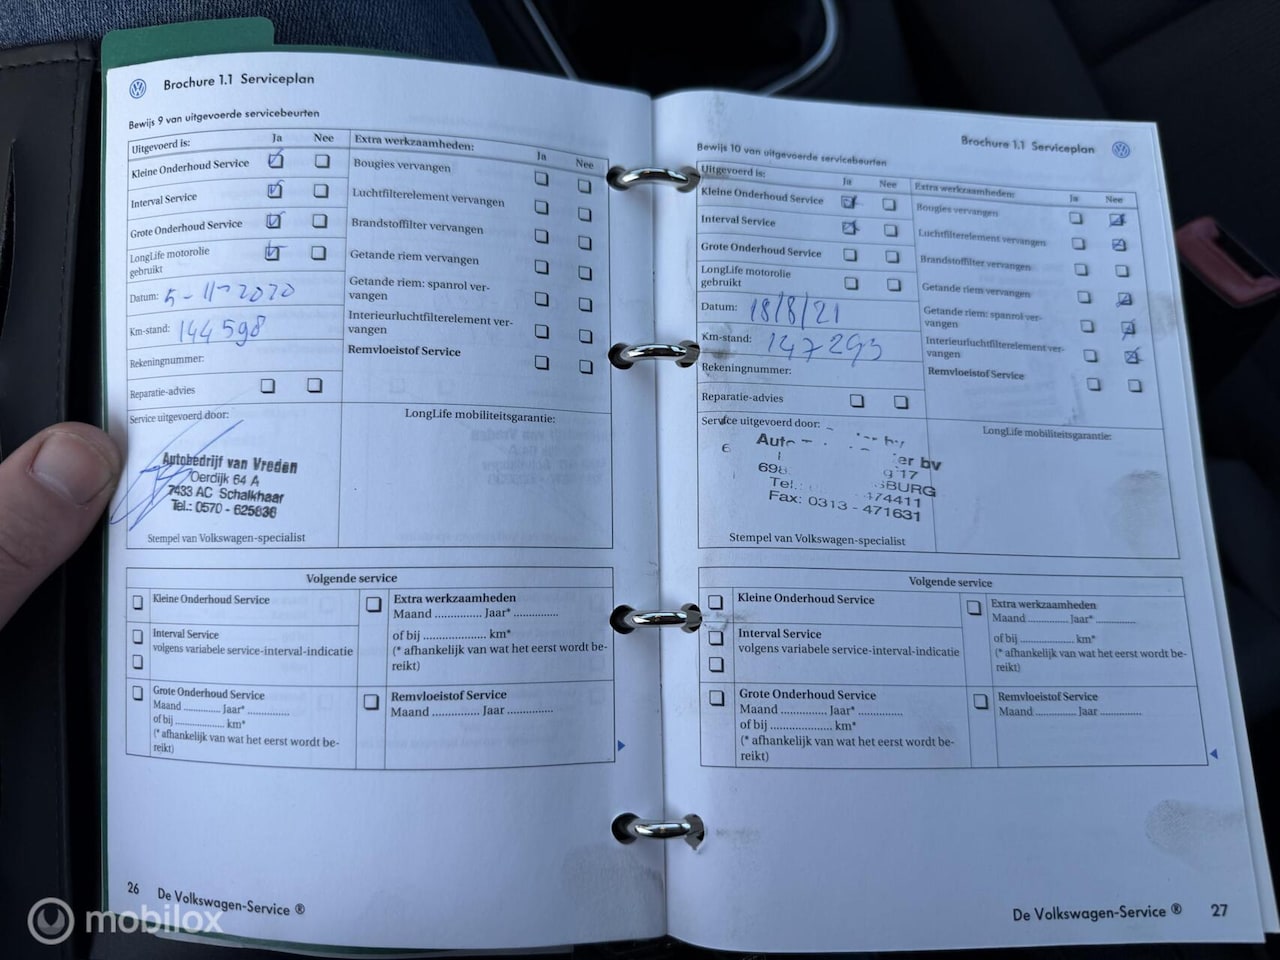 Brochure 1.1 Serviceplan
Bewijs 9 van uitgevoerde servicebeurten
Uitgevoerd is: Ja Nee
Kleine Onderhoud Service
Interval Service
Grote Onderhoud Service
LongLife motorolie
gebruikt
Datum: 5-11-2020
Km-stand: 144598
Rekeningnummer:
Reparatie-advies
Extra werkzaamheden: Ja Nee
Bougies vervangen
Luchtfilterelement vervangen
Brandstoffilter vervangen
Getande riem vervangen
Getande riem: spanrol ver-
vangen
Interieurluchtfilterelement ver-
vangen
Remvloeistof Service
Service uitgevoerd door:
Autobedrijf van Vreden
Oerdijk 64 A
7433 AC Schalkhaar
Tel.: 0570 - 625836
Stempel van Volkswagen-specialist
LongLife mobiliteitsgarantie:
Volgende service
Kleine Onderhoud Service
Interval Service
volgens variabele service-interval-indicatie
Grote Onderhoud Service
Maand ............. Jaar* ..............
of bij .................. km*
(* afhankelijk van wat het eerst wordt be-
reikt)
Extra werkzaamheden
Maand .............. Jaar* ..............
of bij .................... km*
(* afhankelijk van wat het eerst wordt be-
reikt)
Remvloeistof Service
Maand .............. Jaar ..............
26 De Volkswagen-Service ®
Brochure 1.1 Serviceplan
Bewijs 10 van uitgevoerde servicebeurten
Uitgevoerd is: Ja Nee
Kleine Onderhoud Service
Interval Service
Grote Onderhoud Service
LongLife motorolie
gebruikt
Datum: 18/8/21
Km-stand: 147293
Rekeningnummer:
Reparatie-advies
Extra werkzaamheden: Ja Nee
Bougies vervangen
Luchtfilterelement vervangen
Brandstoffilter vervangen
Getande riem vervangen
Getande riem: spanrol ver-
vangen
Interieurluchtfilterelement ver-
vangen
Remvloeistof Service
Service uitgevoerd door:
bv
Tel.: 474411
Fax: 0313 - 471631
Stempel van Volkswagen-specialist
LongLife mobiliteitsgarantie:
Volgende service
Kleine Onderhoud Service
Interval Service
volgens variabele service-interval-indicatie
Grote Onderhoud Service
Maand .............. Jaar* ..............
of bij .................... km*
(* afhankelijk van wat het eerst wordt be-
reikt)
Extra werkzaamheden
Maand .............. Jaar* ..............
of bij .................... km*
(* afhankelijk van wat het eerst wordt be-
reikt)
Remvloeistof Service
Maand .............. Jaar ..............
De Volkswagen-Service ® 27
mobilox